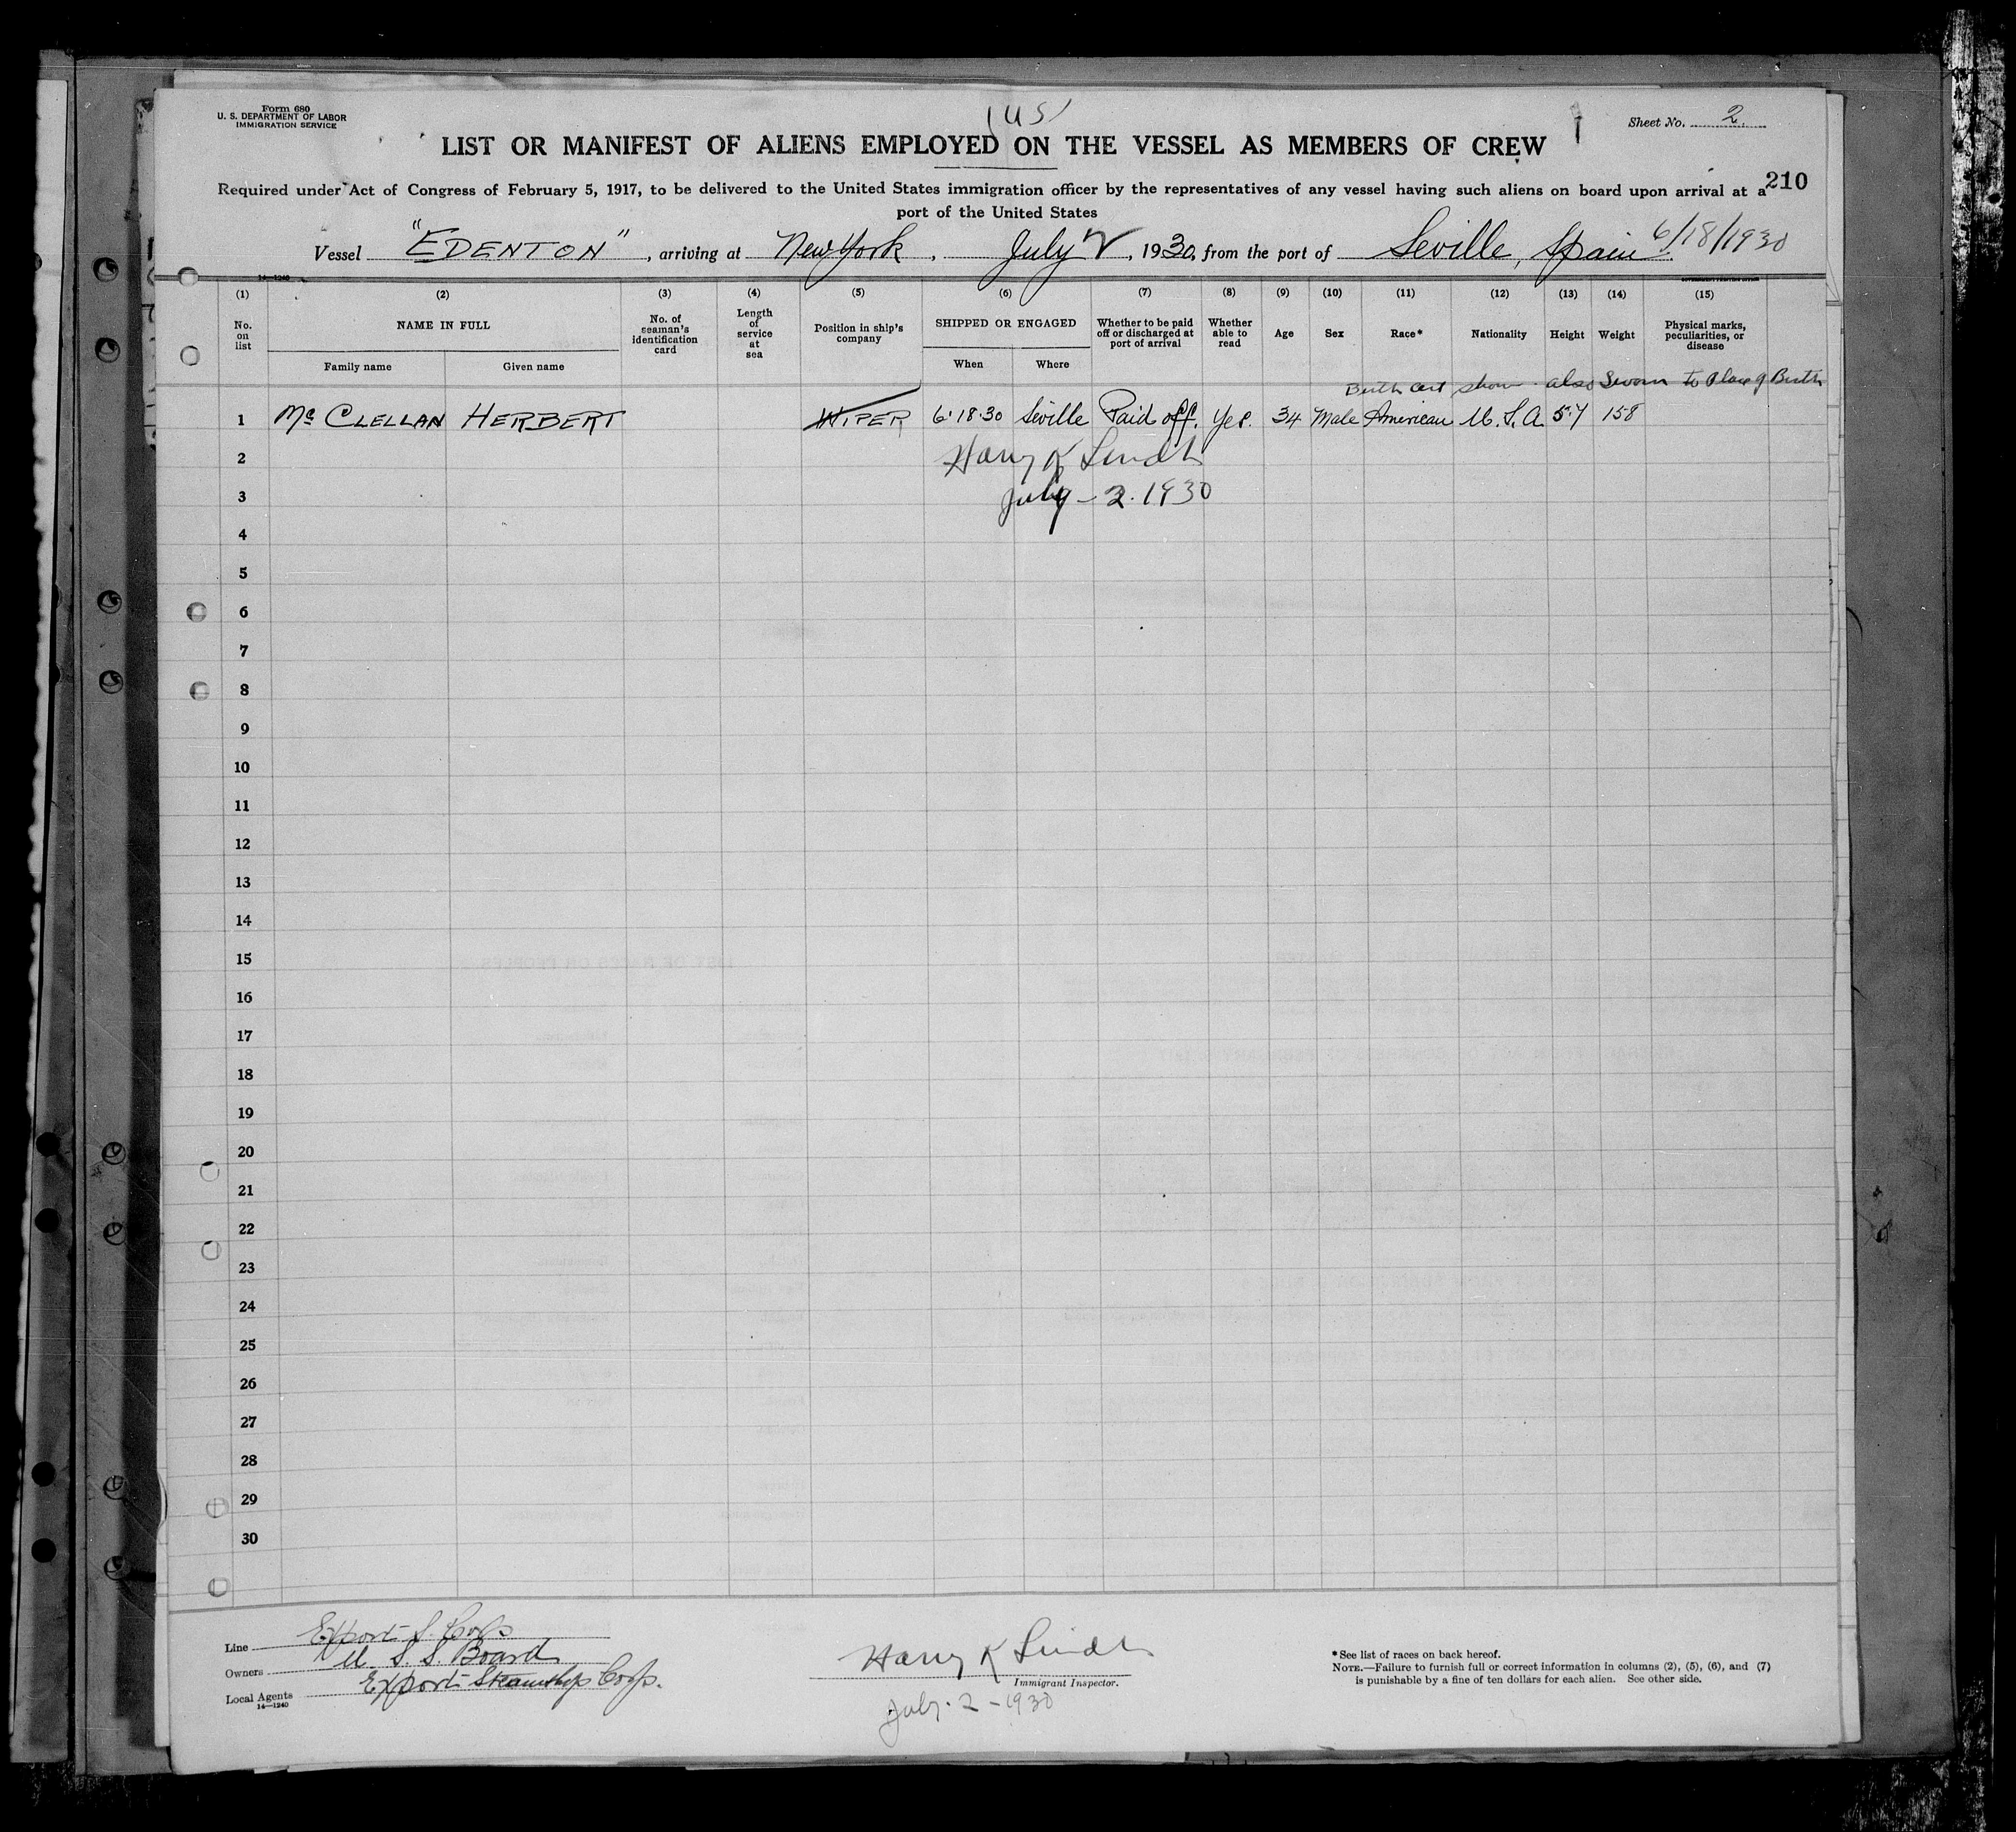 Form 680
U. S. DEPARTMENT OF LABOR
IMMIGRATION SERVICE
1 US
Sheet No. 2.
LIST OR MANIFEST OF ALIENS EMPLOYED ON THE VESSEL AS MEMBERS OF CREW
210
Required under Act of Congress of February 5, 1917, to be delivered to the United States immigration officer by the representatives of any vessel having such aliens on board upon arrival at a
port of the United States
Vessel "EDENTON", arriving at New York, July 2, 1930, from the port of Seville, Spain 6/18/1930
14—1240
(1) (2) (3) (4) (5) (6) (7) (8) (9) (10) (11) (12) (13) (14) (15)
No. on list
NAME IN FULL
Family name
Given name
No. of seaman's identification card
Length of service at sea
Position in ship's company
SHIPPED OR ENGAGED
When
Where
Whether to be paid off or discharged at port of arrival
Whether able to read
Age
Sex
Race*
Nationality
Height
Weight
Physical marks, peculiarities, or disease
Birth cert show also Sworn to Place of Birth
1 Mc CLELLAN HERBERT WIPER 6·18·30 Seville Paid off. Yes. 34 Male American U.S.A. 5·7 158
2 Harry K
3 July - 2. 1930
4
5
6
7
8
9
10
11
12
13
14
15
16
17
18
19
20
21
22
23
24
25
26
27
28
29
30
Line Export S. Corp
Owners U. S. S. Board
Local Agents Export Steamship Corp.
14—1240
Harry K
Immigrant Inspector.
July. 2 - 1930
*See list of races on back hereof.
NOTE.—Failure to furnish full or correct information in columns (2), (5), (6), and (7)
is punishable by a fine of ten dollars for each alien. See other side.